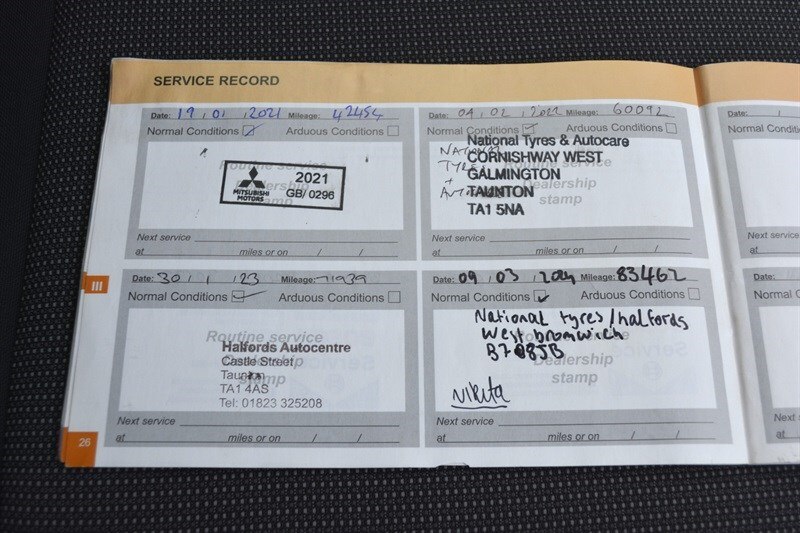 SERVICE RECORD
Date: 19 / 01 / 2021 Mileage: 42454
Normal Conditions Arduous Conditions
Routine service
MITSUBISHI MOTORS 2021 GB/0296
Dealership
stamp
Next service
at miles or on / /
Date: 04 / 02 / 2022 Mileage: 60092
Normal Conditions Arduous Conditions
National Tyres & Autocare
CORNISHWAY WEST
GALMINGTON
TAUNTON
TA1 5NA
Dealership
stamp
Next service
at miles or on / /
Date: /
Normal Con
Next service
at
III
Date: 30 / 1 / 23 Mileage: 71939
Normal Conditions Arduous Conditions
Routine service
Halfords Autocentre
Castle Street
Taunton
TA1 4AS
Tel: 01823 325208
Dealership
stamp
Next service
at miles or on / /
Date: 09 / 03 / 2024 Mileage: 83462
Normal Conditions Arduous Conditions
National tyres/halfords
West bromwich
Dealership
stamp
Nikita
Next service
at miles or on / /
Date:
Normal
Next service
at
26